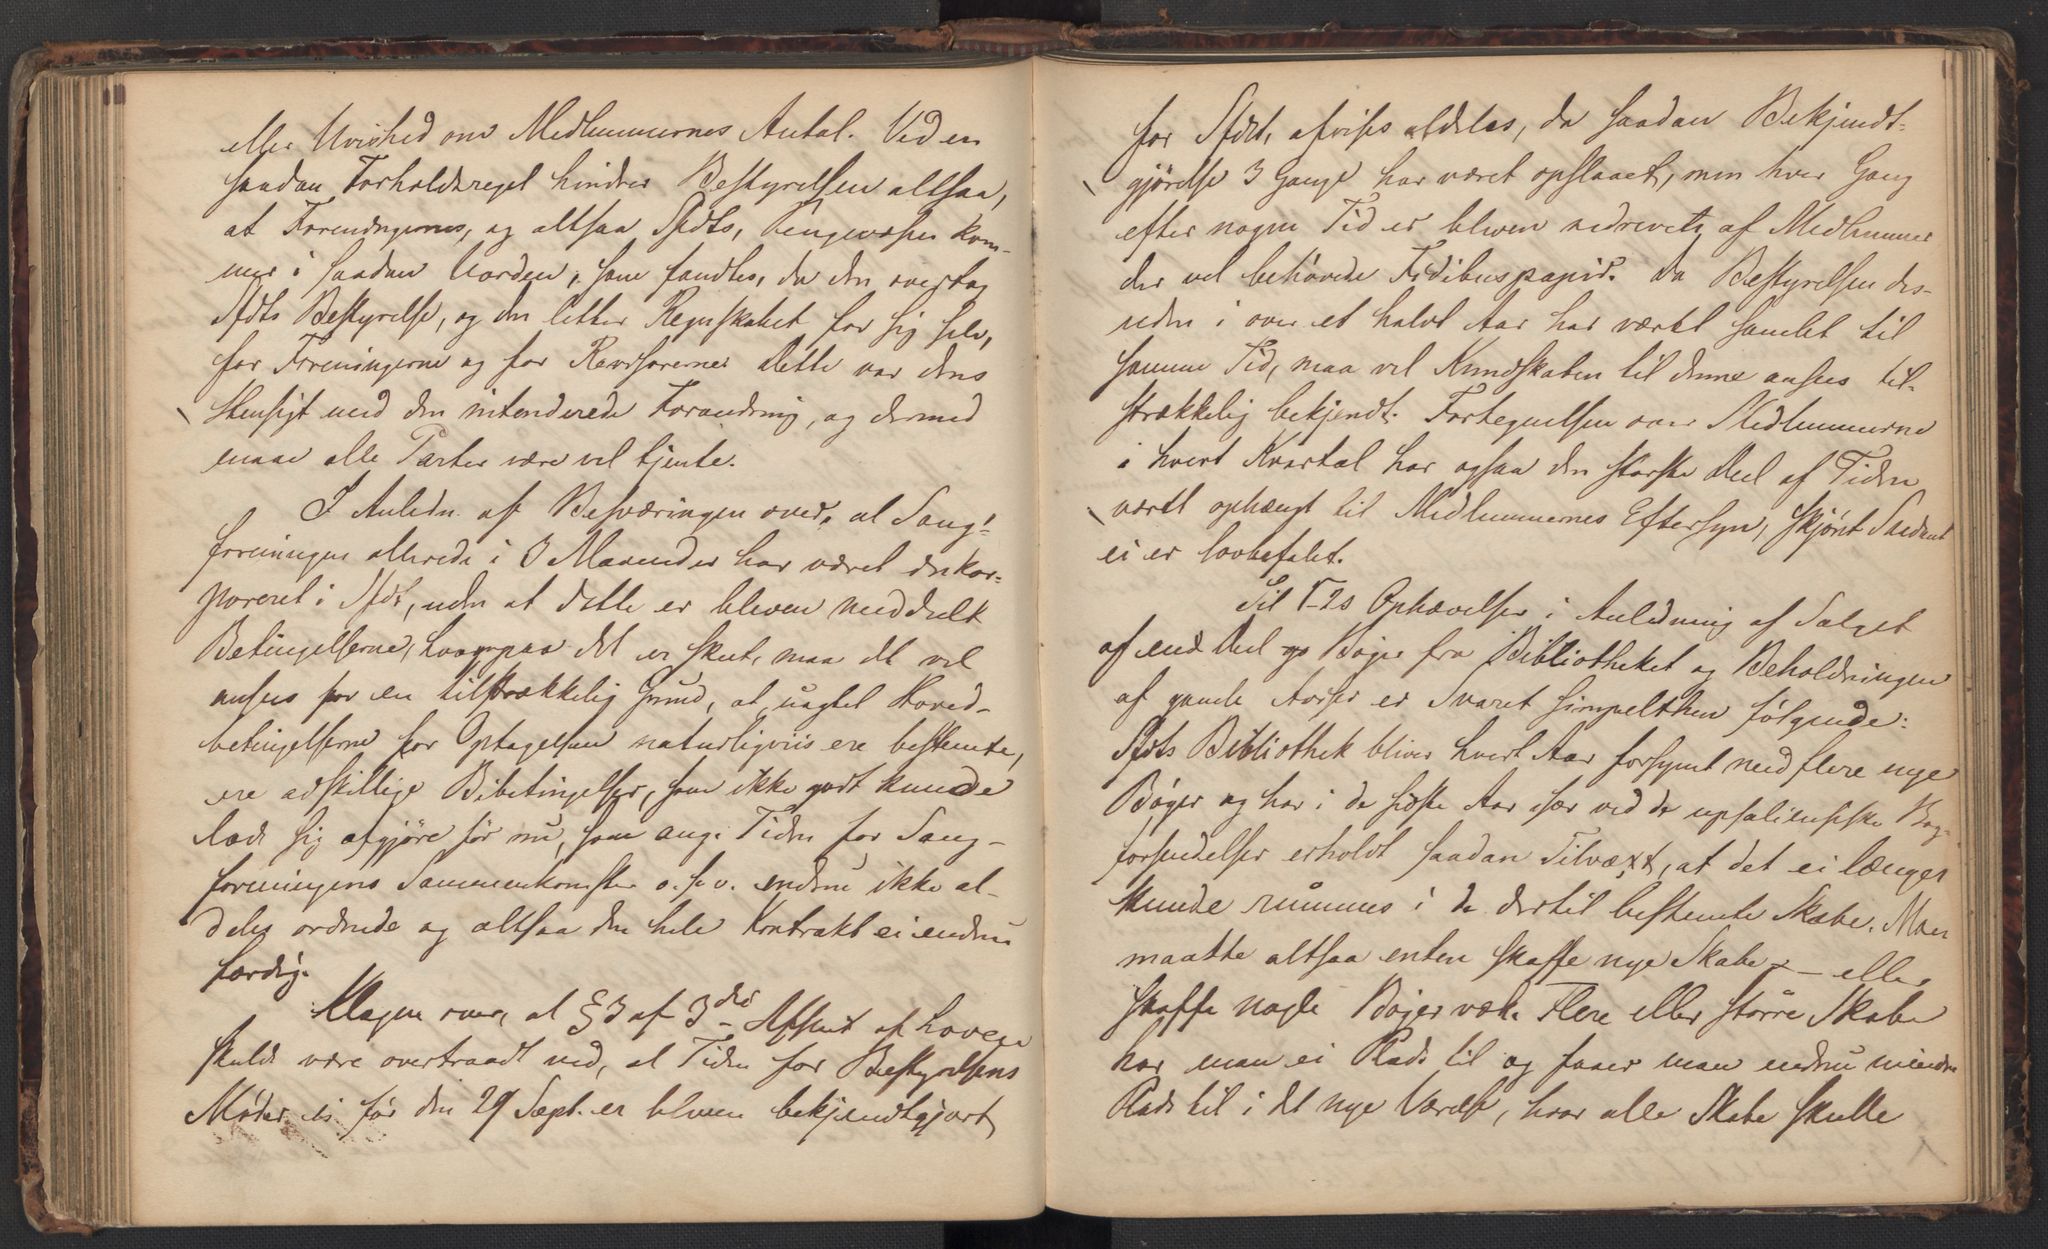 eller Uvished om Medlemmernes Antal. Ved en
saadan Forholdsregel hindrer Bestyrelsen altsaa,
at Foreningernes, og altsaa Sfdts, Pengevæsen kom-
mer i saadan Uorden, som fandtes, da den overtog
Sfdts Bestyrelse, og den letter Regnskabet for sig selv,
for Foreningerne og for Revisorerne. Dette var dens
Hensigt med den intenderede Forandring, og dermed
maae alle Parter være vel tjente.
I Anledn. af Besværingen over, at Sang-
foreningen allerede i 3 Maaneder har været inkor-
poreret i Sfdt, uden at dette er bleven meddeelt
Betingelserne, hvorpaa det er skeet, maa det vel
ansees for en tilstrækkelig Grund, at uagtet Hoved-
betingelserne for Optagelsen naturligviis ere bestemte,
ere adskillige Bibetingelser, som ikke godt kunde
lade sig afgjöre för nu, som ang. Tiden for Sang-
foreningens Sammenkomster o.s.v. endnu ikke al-
deles ordnede og altsaa den hele Kontrakt ei endnu
færdig.
Klagen over, at § 3 af 3die Afsnit af Loven
skulde være overtraadt ved, at Tiden for Bestyrelsens
Møder ei før den 29 Sept. er bleven bekjendtgjort
for Sfdt, afvises aldeles, da saadan Bekjendt-
gjørelse 3 Gange har været opslaaet, men hver Gang
efter nogen Tid er bleven nedrevet af Medlemmer
der vel behøvede Fidibuspapir. Da Bestyrelsen des-
uden i over et halvt Aar har været samlet til
samme Tid, maa vel Kundskaben til denne ansees til-
strækkelig bekjendt. Fortegnelsen over Medlemmerne
i hvert Kvartal har ogsaa den største Deel af Tiden
været ophængt til Medlemmernes Eftersyn, skjönt Saadant
ei er lovbefalet.
Til Ophævelser i Anledning af Salget
af end Deel Bøger fra Bibliotheket og Beholdningen
af gamle Aviser er Svaret simpelthen følgende:
Sfdts Bibliothek bliver hvert Aar forsynet med flere nye
Bøger og har i de sidste Aar især ved de upsaliensiske Bog-
forsendelser erholdt saadan Tilvæxt, at det ei længer
kunde rummes i de dertil bestemte Skabe. Man
maatte altsaa enten skaffe nye Skabe – eller
skaffe nogle Bøger væk. Flere eller större Skabe
har man ei Plads til og faaer man endnu mindre
Plads til i det nye Værelse, hvor alle Skabe skulle